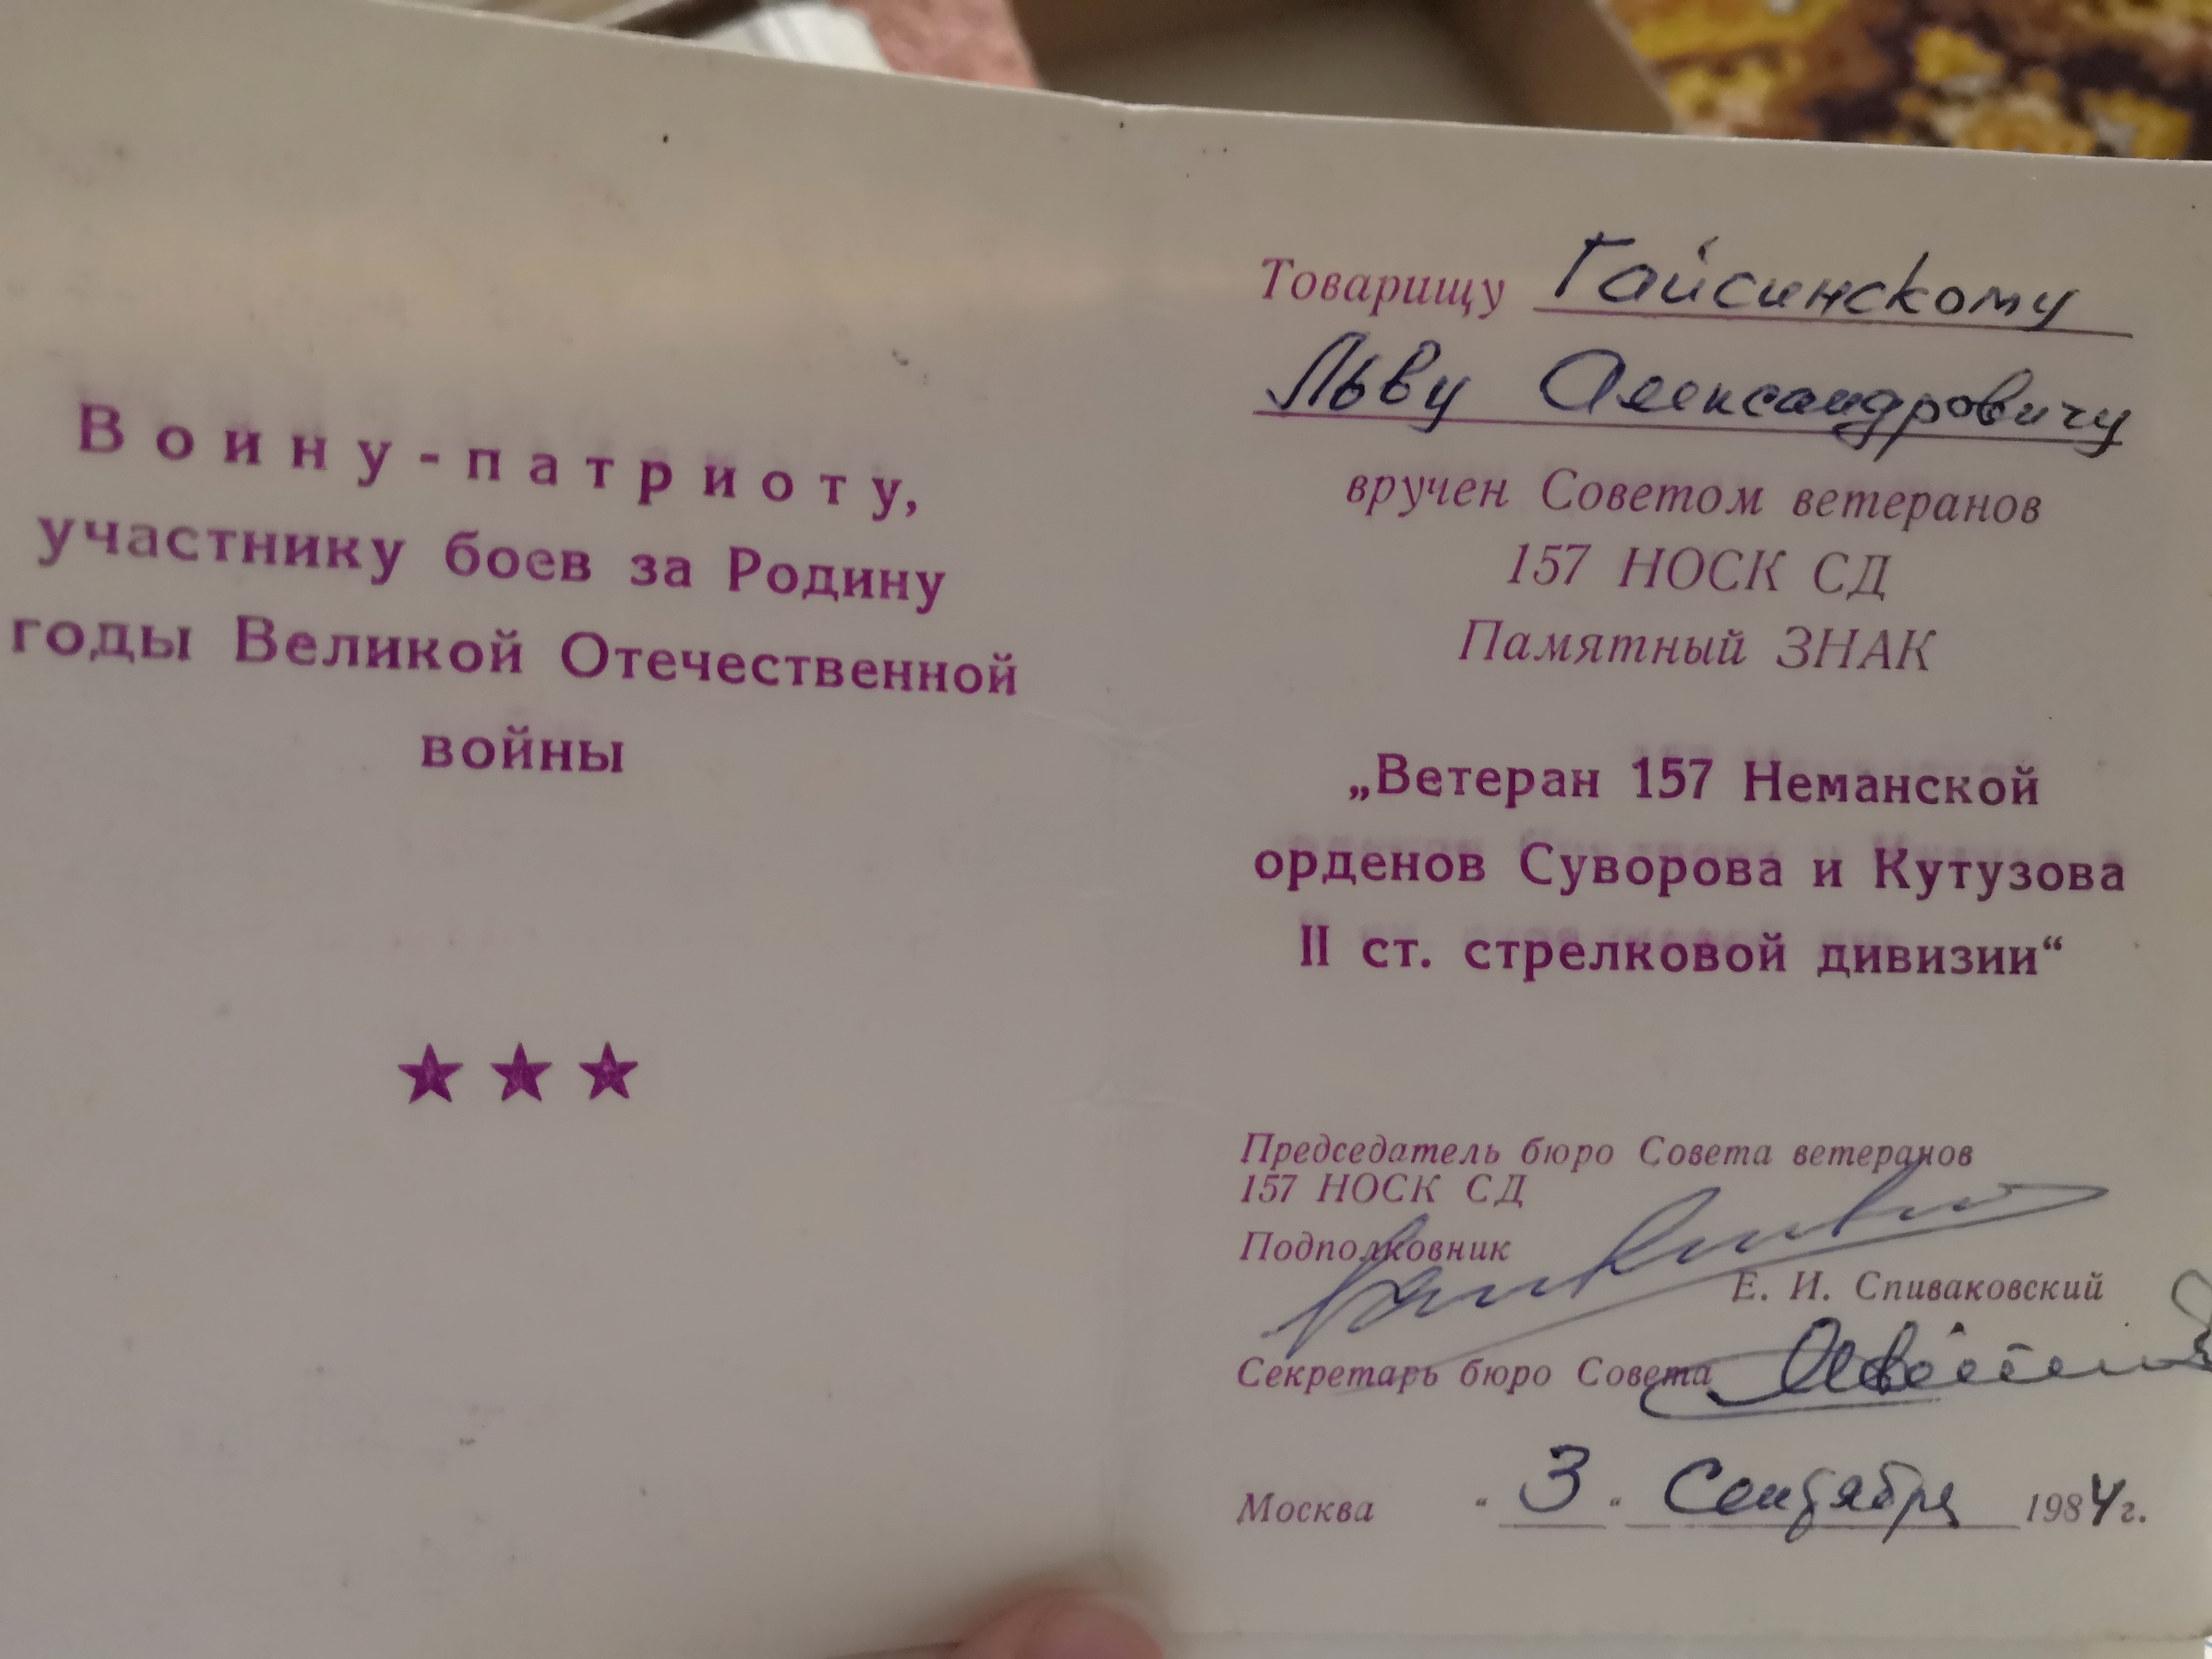 Воину-патриоту,
участнику боев за Родину
годы Великой Отечественной
войны
Товарищу Гайсинскому
Льву Александровичу
вручен Советом ветеранов
157 НОСК СД
Памятный ЗНАК
„Ветеран 157 Неманской
орденов Суворова и Кутузова
II ст. стрелковой дивизии“
Председатель бюро Совета ветеранов
157 НОСК СД
Подполковник
Е. И. Спиваковский
Секретарь бюро Совета
Москва “ 3 “ Сентября 1984г.